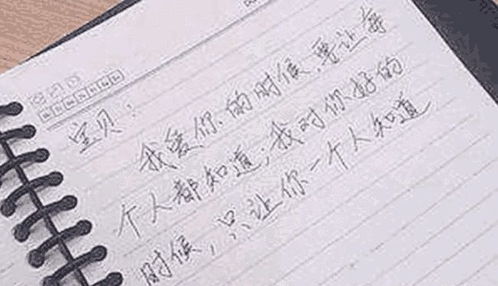 宝贝：
我爱你的时候，要让每
个人都知道；我对你好的
时候，只让你一个人知道